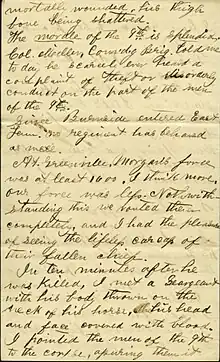 mortally wounded, his thigh
bone being shattered.
The morale of the 9th is splendid.
Col. Comdg Brig, told me
to day, he scarcely ever heard a
complaint of theft or disorderly
conduct on the part of the men
of the 9th.
Since Burnside entered East
Tenn. no regiment has behaved
as
At Greenville, Morgan's force
was at least 1600. I think more,
our force was less. Notwith
standing this we routed them
completely, and I had the pleasure
of seeing the lifeless carcass of
their fallen chief.
In ten minutes after he
was killed, I met a Seargeant
with his body thrown on the
neck of his horse, his head
and face covered with blood.
I pointed the men of the 9th
to the corpse, assuring them it